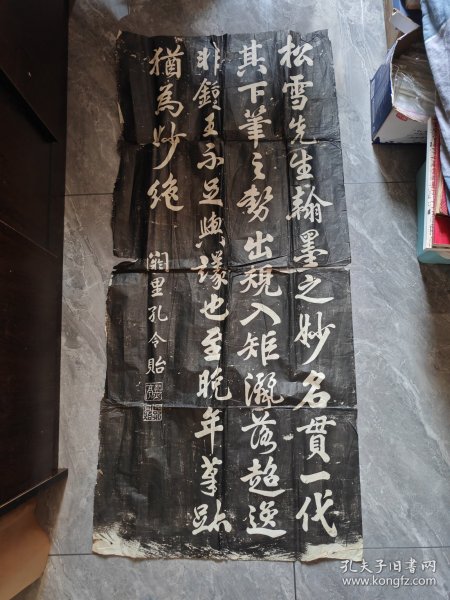 松雪先生翰墨之妙名貫一代
其下筆之勢出規入矩瀟落超逸
非鍾王不足與議也至晚年筆跡
猶為妙絶
闕里孔令貽
孔夫子旧书网
www.kongfz.com